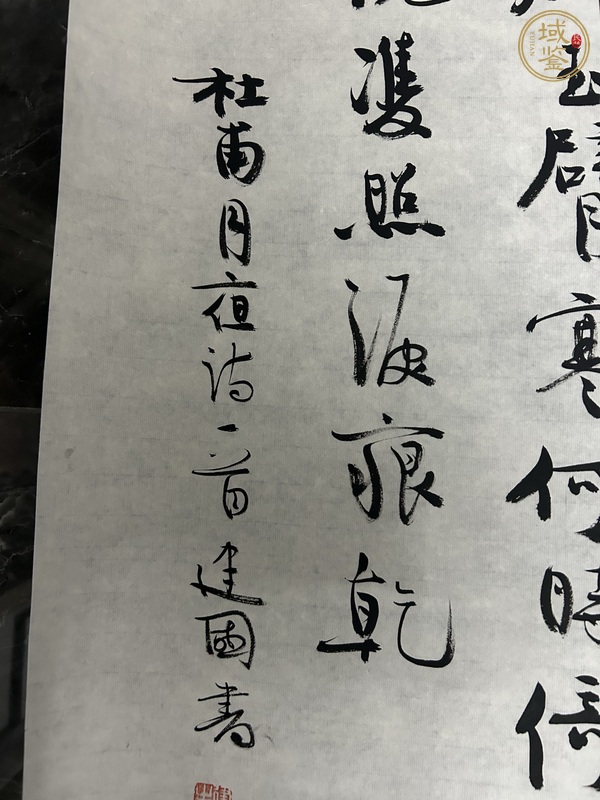 玉臂寒何時倚
幌雙照淚痕乾
杜甫月夜詩一首建國書
域鑒